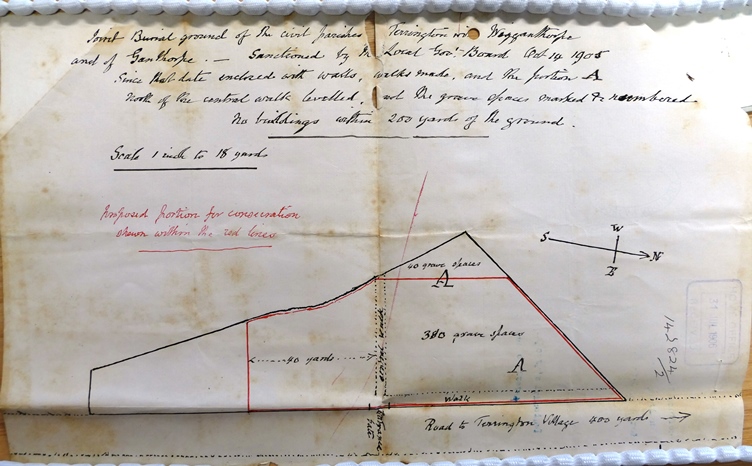 Joint Burial ground of the civil parishes Terrington w. Wigganthorpe
and of Ganthorpe. — Sanctioned by the Local Gov.t Board Oct 14 1905
Since that date enclosed with walls, walks made, and the portion A
North of the central walk levelled, and the grave spaces marked & numbered
No buildings within 200 yards of the ground.
Scale 1 inch to 18 yards
Proposed portion for consecration
shown within the red lines
S W N E
40 grave spaces
A
380 grave spaces
40 yards
central walk
A
Walk
Entrance
Gate
Road to Terrington Village 400 yards
142824/2